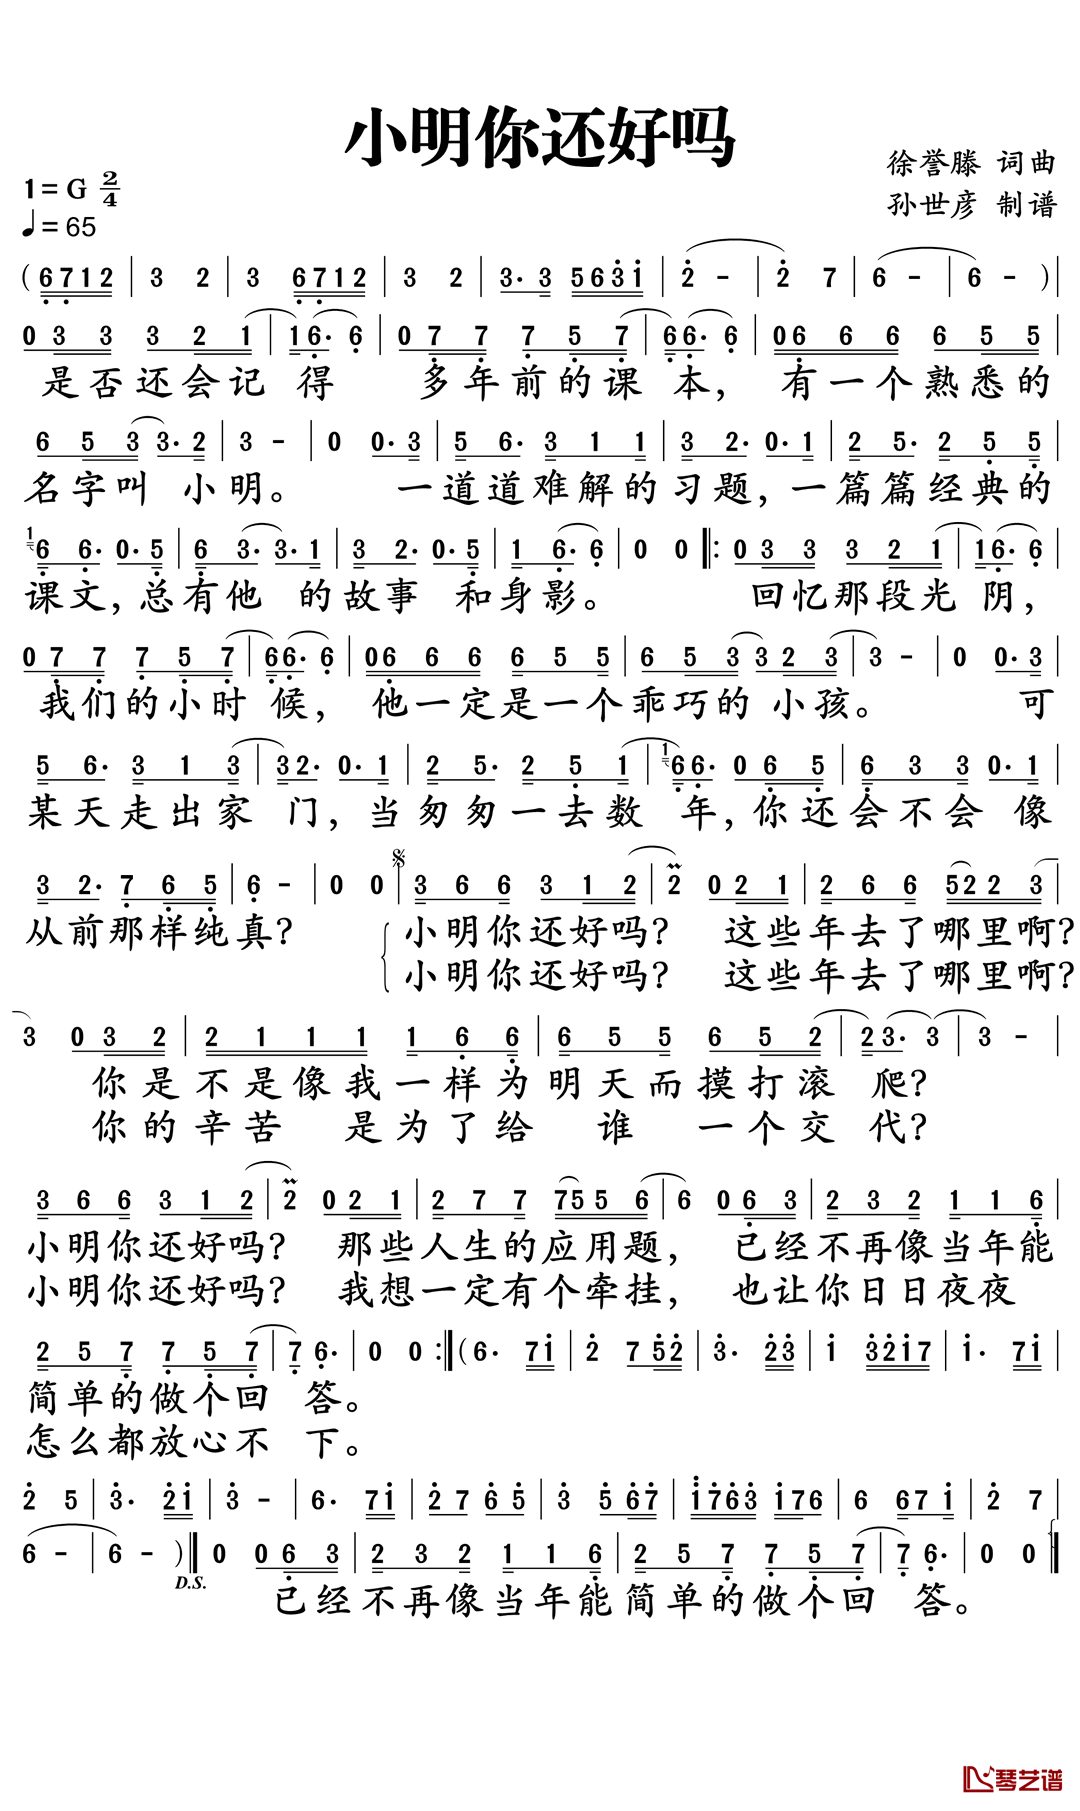 小明你还好吗
徐誉滕 词曲
孙世彦 制谱
1=G 2/4
♩=65
( 6 7 1 2 | 3 2 | 3 6 7 1 2 | 3 2 | 3· 3 5 6 3 1 | 2 - | 2 7 | 6 - | 6 - ) |
0 3 3 3 2 1 | 1 6· 6 | 0 7 7 7 5 7 | 6 6· 6 | 0 6 6 6 6 5 5 |
是否还会记 得 多年前的课 本, 有一个熟悉的
6 5 3 3· 2 | 3 - | 0 0· 3 | 5 6· 3 1 1 | 3 2· 0· 1 | 2 5· 2 5 5 |
名字叫 小明。 一道道难解的习题, 一篇篇经典的
1 6 6· 0· 5 | 6 3· 3· 1 | 3 2· 0· 5 | 1 6· 6 | 0 0 |: 0 3 3 3 2 1 | 1 6· 6 |
课文, 总有他 的故事 和身影。 回忆那段光 阴,
0 7 7 7 5 7 | 6 6· 6 | 0 6 6 6 6 5 5 | 6 5 3 3 2 3 | 3 - | 0 0· 3 |
我们的小时 候, 他一定是一个乖巧的 小孩。 可
5 6· 3 1 3 | 3 2· 0· 1 | 2 5· 2 5 1 | 1 6 6· 0 6 5 | 6 3 3 0· 1 |
某天走出家 门, 当匆匆一去数 年, 你还会不会 像
3 2· 7 6 5 | 6 - | 0 0 | 3 6 6 3 1 2 | 2 0 2 1 | 2 6 6 5 2 2 3 |
从前那样纯真? 小明你还好吗? 这些年去了哪里啊?
小明你还好吗? 这些年去了哪里啊?
3 0 3 2 | 2 1 1 1 1 6 6 | 6 5 5 6 5 2 | 2 3· 3 | 3 - |
你是不是像我一样为明天而摸打滚 爬?
你的辛苦 是为了给 谁 一个交 代?
3 6 6 3 1 2 | 2 0 2 1 | 2 7 7 7 5 5 6 | 6 0 6 3 | 2 3 2 1 1 6 |
小明你还好吗? 那些人生的应用题, 已经不再像当年能
小明你还好吗? 我想一定有个牵挂, 也让你日日夜夜
2 5 7 7 5 7 | 7 6· | 0 0 :| ( 6· 7 1 | 2 7 5 2 | 3· 2 3 | 1 3 2 1 7 | 1· 7 1 |
简单的做个回 答。
怎么都放心不 下。
2 5 | 3· 2 1 | 3 - | 6· 7 1 | 2 7 6 5 | 3 5 6 7 | 1 7 6 3 1 7 6 | 6 6 7 1 | 2 7 |
6 - | 6 - ) | 0 0 6 3 | 2 3 2 1 1 6 | 2 5 7 7 5 7 | 7 6· | 0 0 |
D.S.
已经不再像当年能简单的做个回 答。
琴艺谱